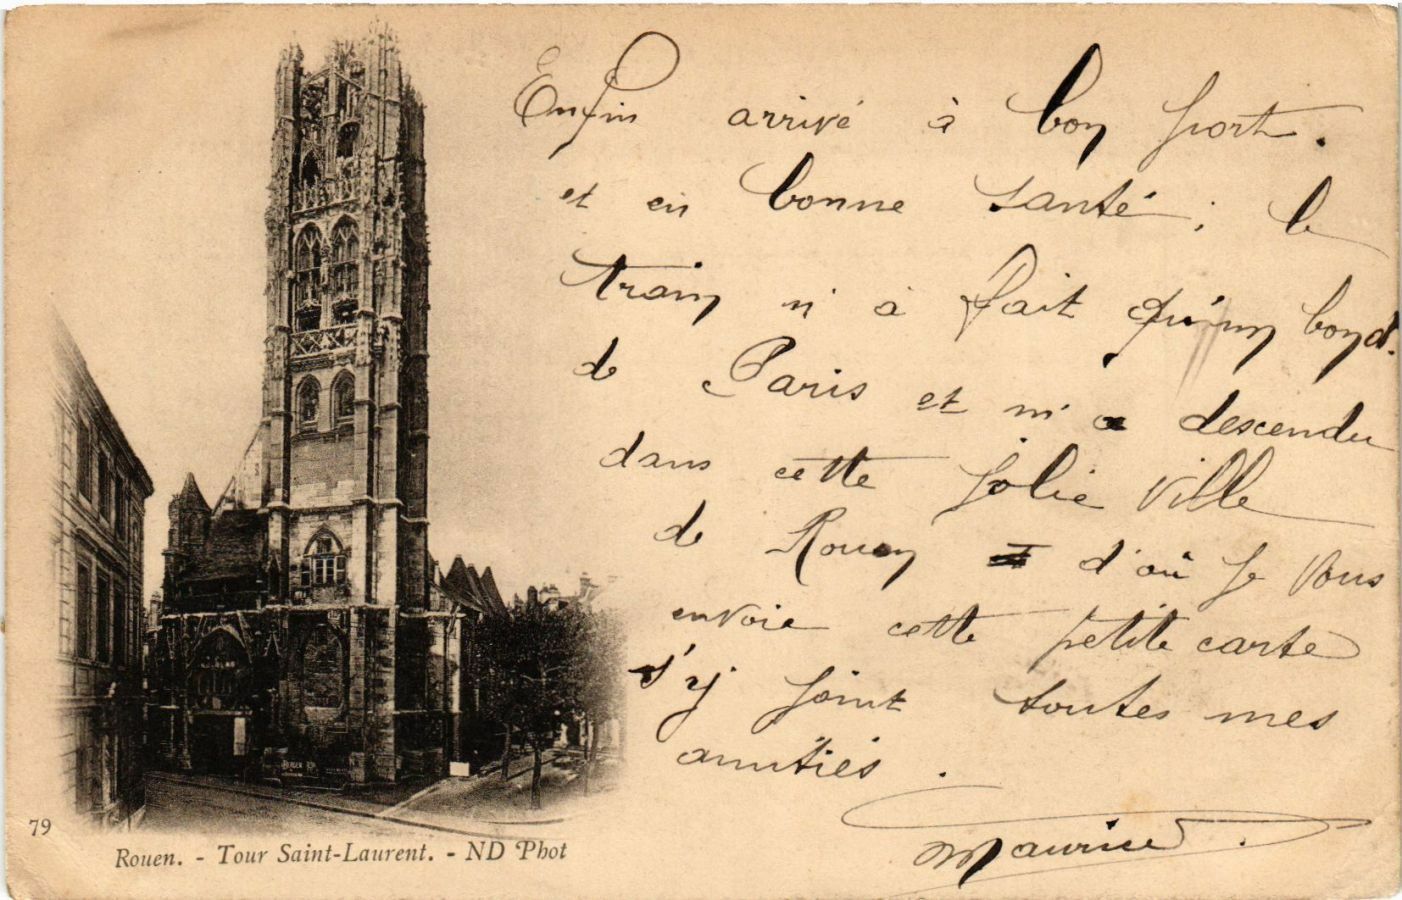 Enfin arrivé à bon port.
et en bonne santé ; le
train n'à fait qu'un bond.
de Paris et m'a descendu
dans cette jolie ville
de Rouen d'où je vous
envoie cette petite carte
s'y joint toutes mes
amitiés.
Maurice.
79
Rouen. - Tour Saint-Laurent. - ND Phot